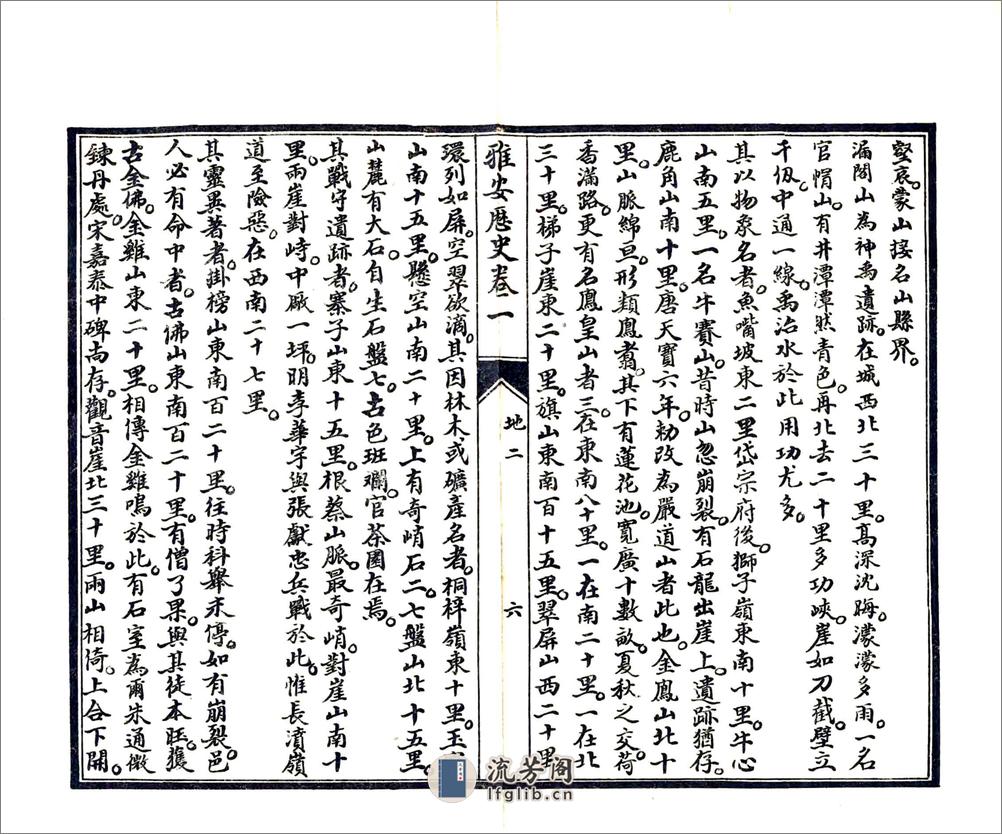 壑哀。蒙山接名山縣界。
漏閣山為神禹遺跡。在城西北三十里。高深沈晦。濛濛多雨。一名
官帽山。有井潭潭然青色。再北去二十里多功峽。崖如刀截。壁立
千仞。中通一線。禹治水於此用功尤多。
其以物象名者。魚嘴坡東二里岱宗府後。獅子嶺東南十里。牛心
山南五里。一名牛賽山。昔時山忽崩裂。有石龍出崖上。遺跡猶存。
鹿角山南十里。唐天寶六年。勅改為嚴道山者此也。金鳳山北十
里。山脈綿亘。形類鳳翥。其下有蓮花池。寬廣十數畝。夏秋之交。荷
香滿路。更有名鳳皇山者三。在東南八十里。一在南二十里。一在北
三十里。梯子崖東二十里。旗山東南百十五里。翠屏山西二十里
雅安歷史卷二
地二
六
環列如屏。空翠欲滴。其因林木或礦產名者。桐梓嶺東十里。玉
山南十五里。懸空山南二十里。上有奇峭石。二七盤山北十五里。
山麓有大石。自生石盤七。古色班斕。官茶園在焉。
其戰守遺跡者。寨子山東十五里。根蔡山脈。最奇峭。對崖山南十
里。兩崖對峙。中厰一坪。明李華宇與張獻忠兵戰於此。惟長濆嶺
道至險惡。在西南二十七里。
其靈異著者。掛榜山東南百二十里。往時科舉未停。如有崩裂。邑
人必有命中者。古佛山東南百二十里。有僧了果。與其徒本旺獲
古金佛。金雞山東二十里。相傳金雞鳴於此。有石室為爾朱通微
鍊丹處。宋嘉泰中碑尚存。觀音崖北三十里。兩山相倚。上合下開。
流芳阁
lfglib.cn